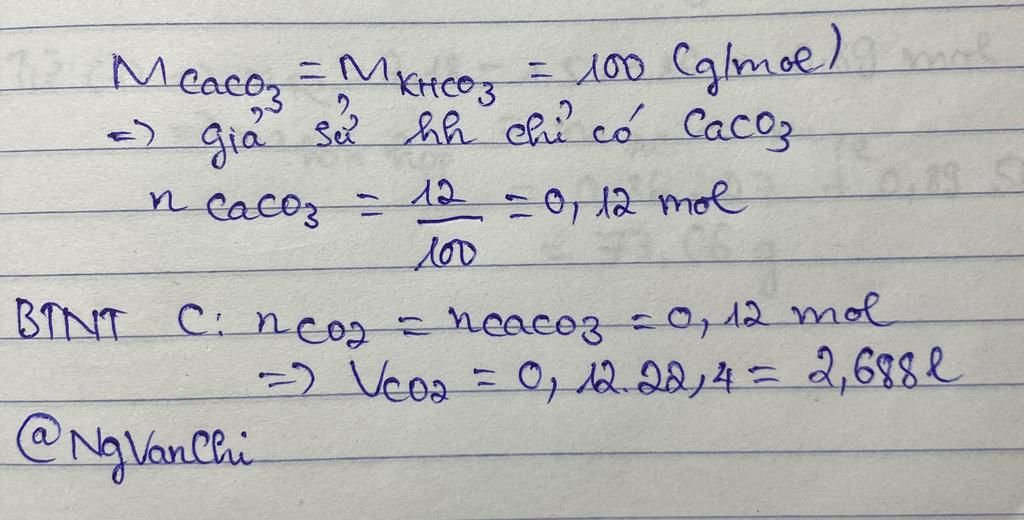 M CaCO3 = M KHCO3 = 100 (g/mol)
=> giả sử hh chỉ có CaCO3
n CaCO3 = 12/100 = 0,12 mol
BTNT C: nCO2 = nCaCO3 = 0,12 mol
=> VCO2 = 0,12.22,4 = 2,688l
@NgVanChi